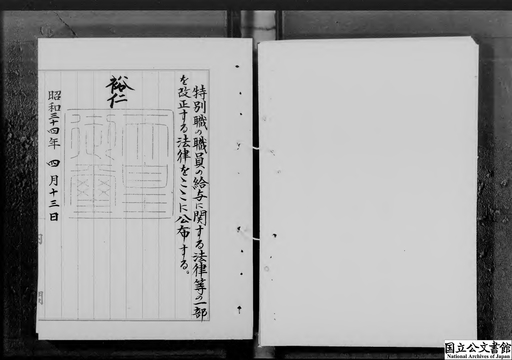 特別職の職員の給与に関する法律等の一部
を改正する法律をここに公布する。
裕仁
天皇御璽
昭和三十四年四月十三日
国立公文書館
National Archives of Japan